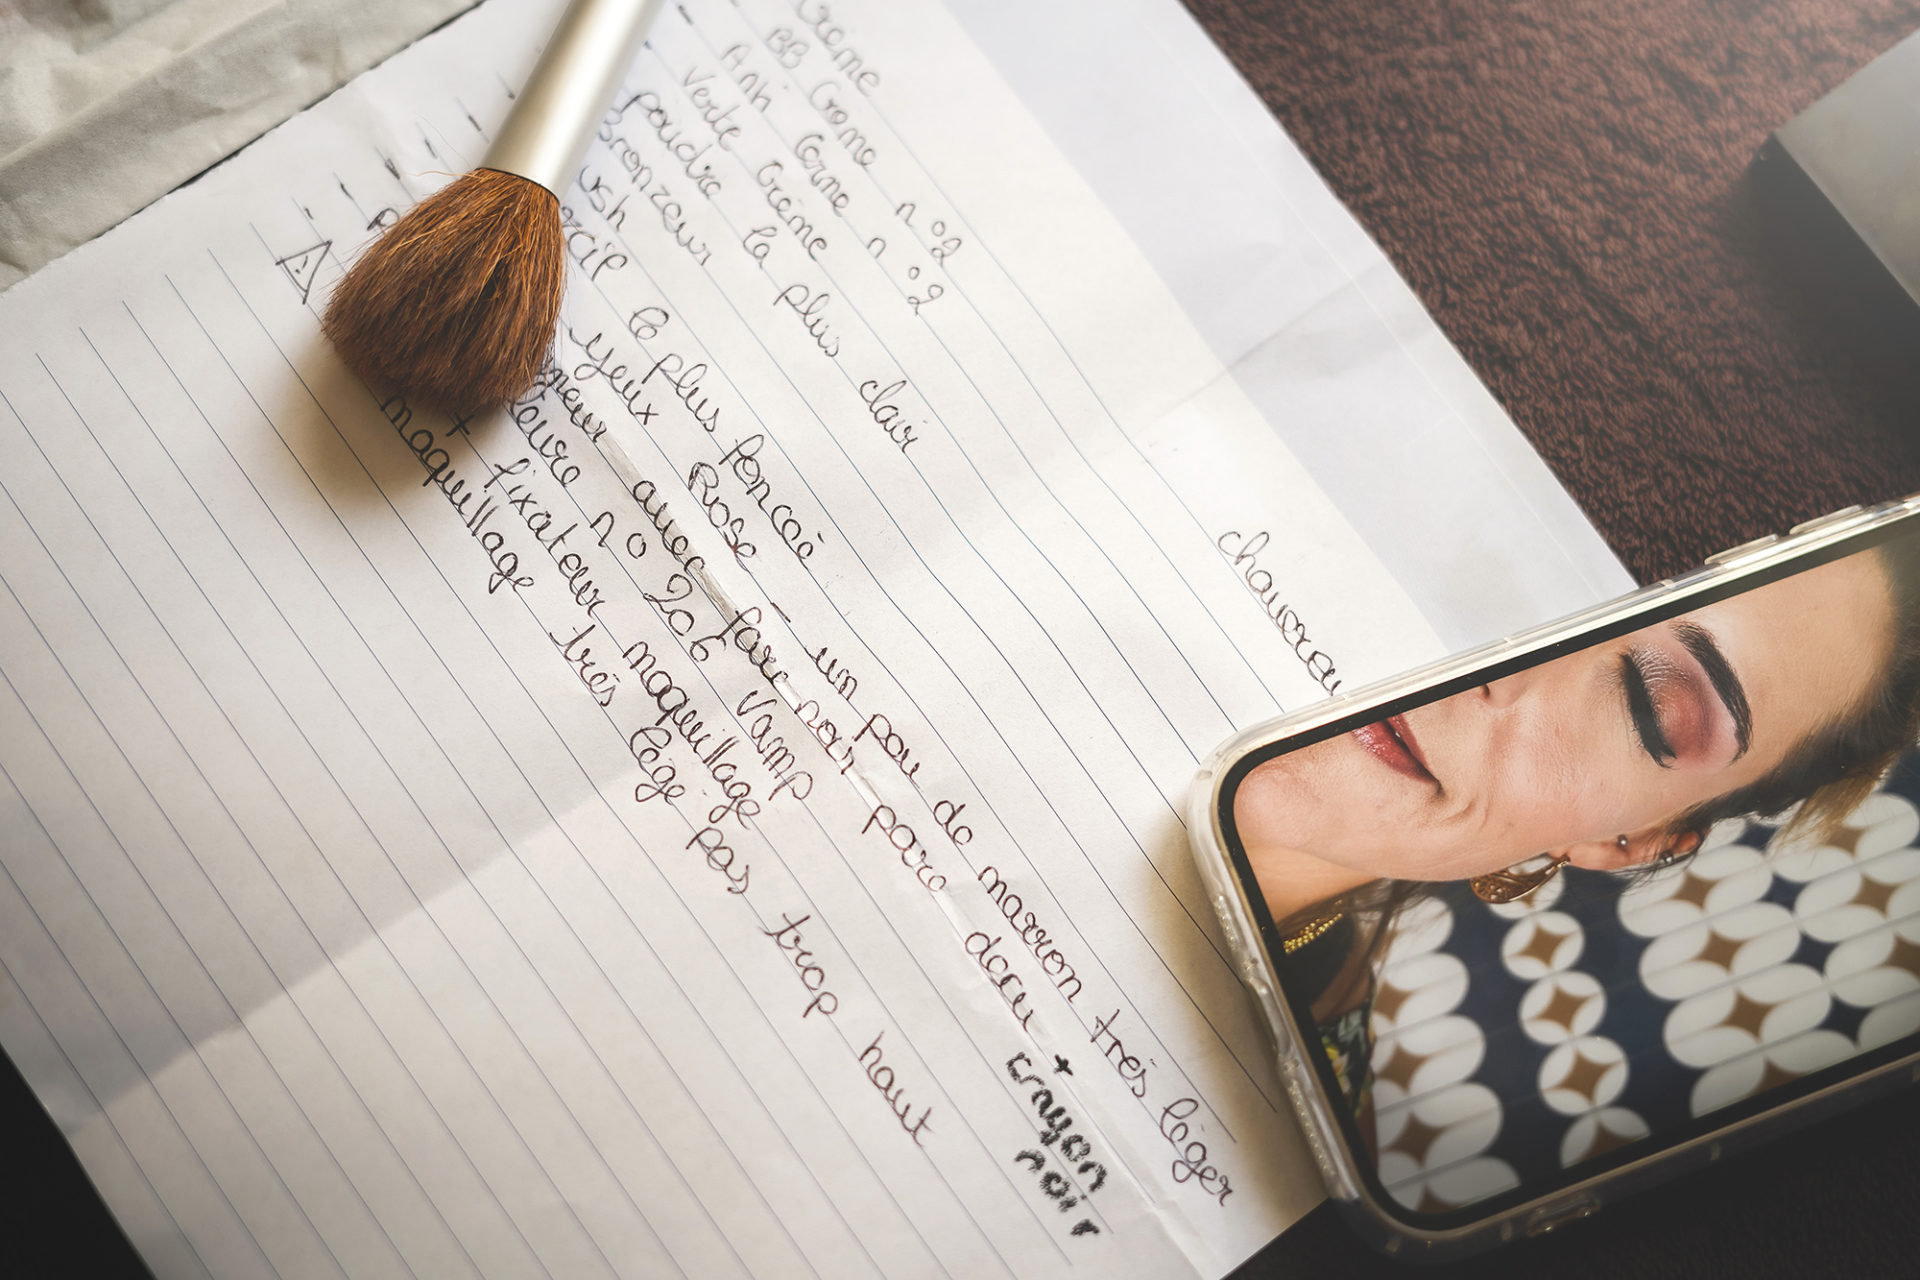 Crème
BB Creme n°2
Anti Cerne n°2
verte Crème
poudre la plus clair
Bronzeur
le plus foncé
yeux Rose - un peu de marron très léger
avec fare noir pare
+ crayon noir
n° 206 vamp
+ fixateur maquillage
maquillage très lége pas trop haut